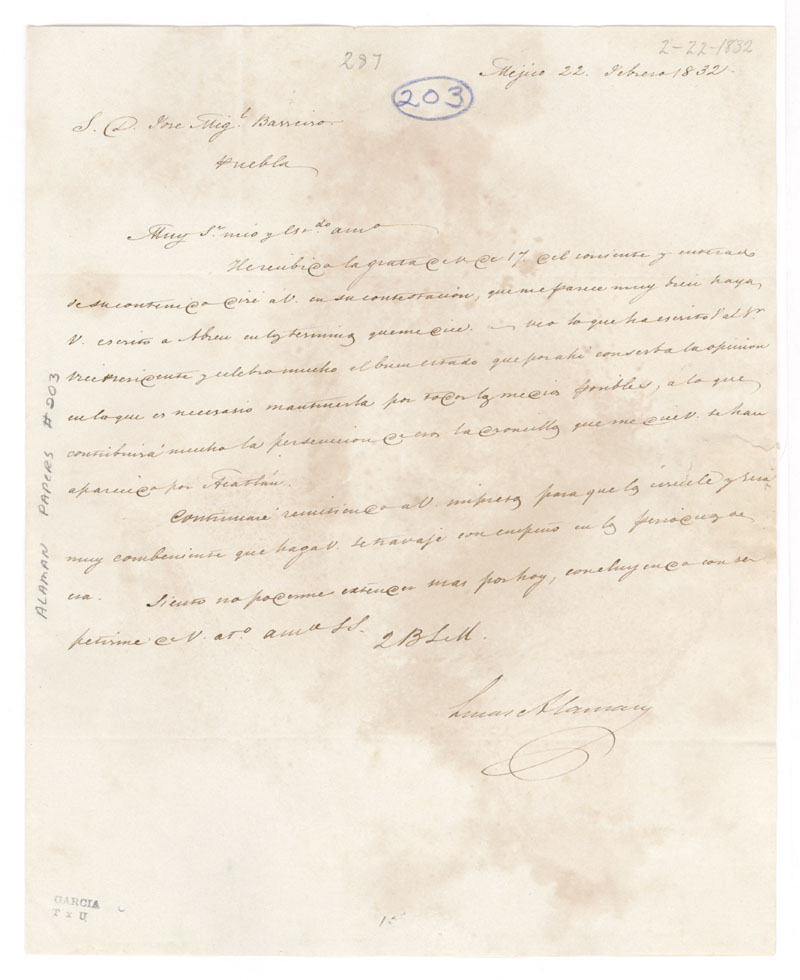 287
2-22-1832
203
Mejico 22. Febrero 1832.
S. D. Jose Mig.l Barreiro
Puebla
Muy Sr. mio y amo
He recibido la grata de V. de 17 del corriente y enterado
de su contenido diré a V. en su contestación, que me parece muy bien haya
V. escrito a Abreu en los terminos que me dice. veo lo que ha escrito V. al Sr.
Vicepresidente y celebro mucho el buen estado que por ahi conserba la opinion
en lo que es necesario mantenerla por todos los medios posibles, a lo que
contribuirá mucho la persecucion de esos ladroncillos que me dice V. se han
aparecido por Acatlán.
Continuaré remitiendo a V. impresos para que los circule y será
muy combeniente que haga V. se travaje con empeño en los periodicos de
esa. Siento no poderme extender mas por hoy, concluyendo con re
petirme de V. at.o S.S.
Q B S M.
Lucas Alaman
ALAMAN PAPERS #203
GARCIA
T x U